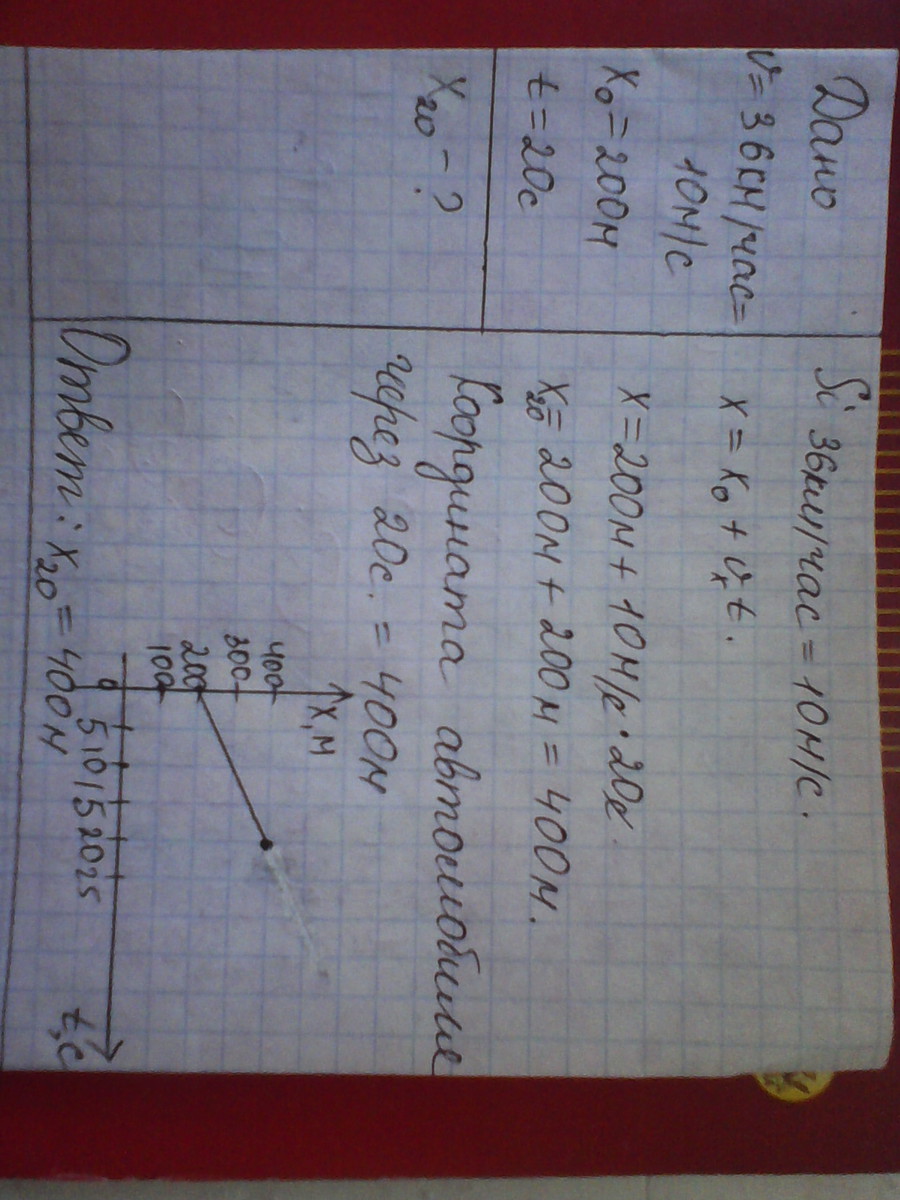 Дано
v = 36км/час =
10м/с
x₀ = 200м
t = 20с
x₂₀ - ?
Si 36км/час = 10м/с.
x = x₀ + vₓt.
x = 200м + 10м/с · 20с
x₂₀ = 200м + 200м = 400м.
Координата автомобиля
через 20с. = 400м
x, м
400
300
200
100
0 5 10 15 20 25 t, с
Ответ: x₂₀ = 400м